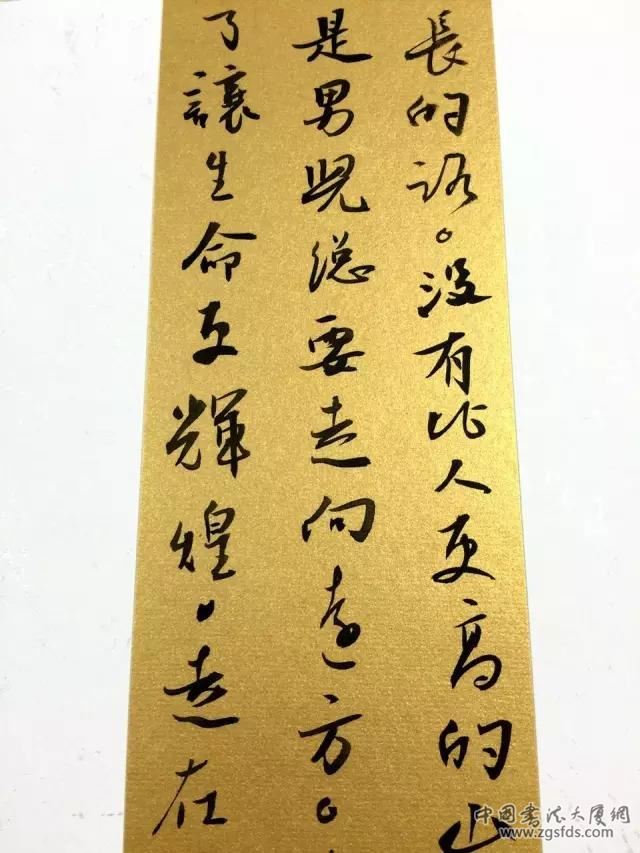 長的路。没有比人更高的山
是男兒總要走向遠方。
了讓生命更輝煌。走在
中国书法大厦網
www.zgsfds.com